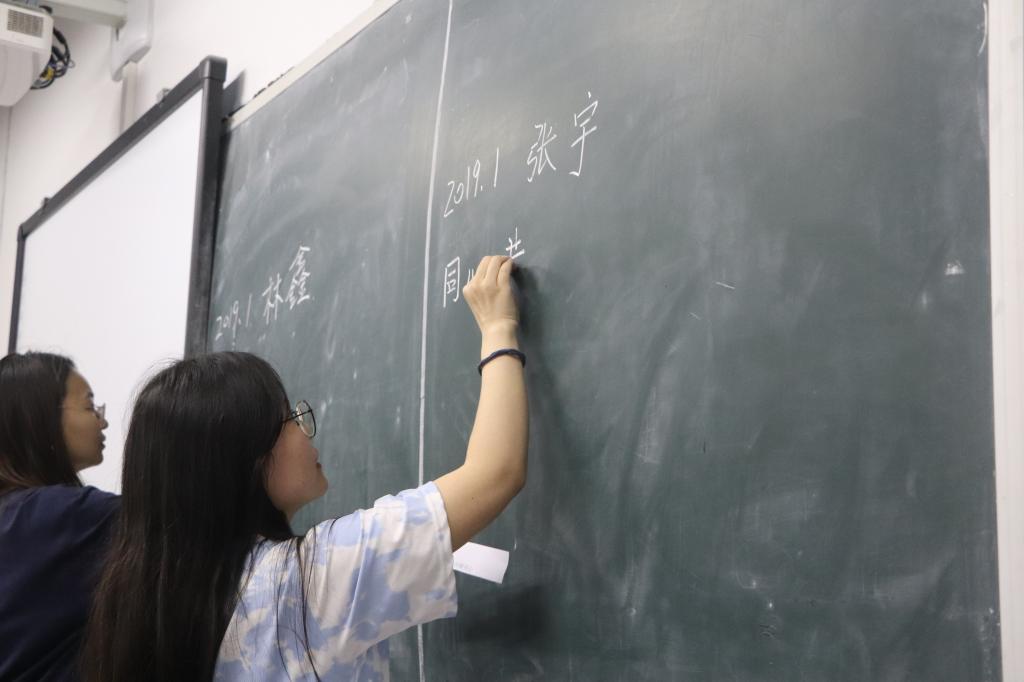 2019.1 林鑫
2019.1 张宇
同